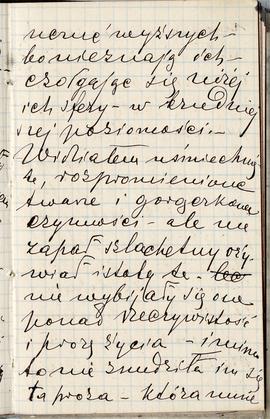 wyższych-
bo nieznają ich-
czołgając się niżej
ich sfery - w brudniej
szej poziomości -
Widziałem uśmiechnię
te, rozpromienione
twarze i gorączkowe
czynności - ale nie
zapał szlachetny oży
wiał istoty te -
nie wybijały się one
ponad rzeczywistość
i prozę życia - i mimo
to nie znudziła im się
ta proza - która mnie